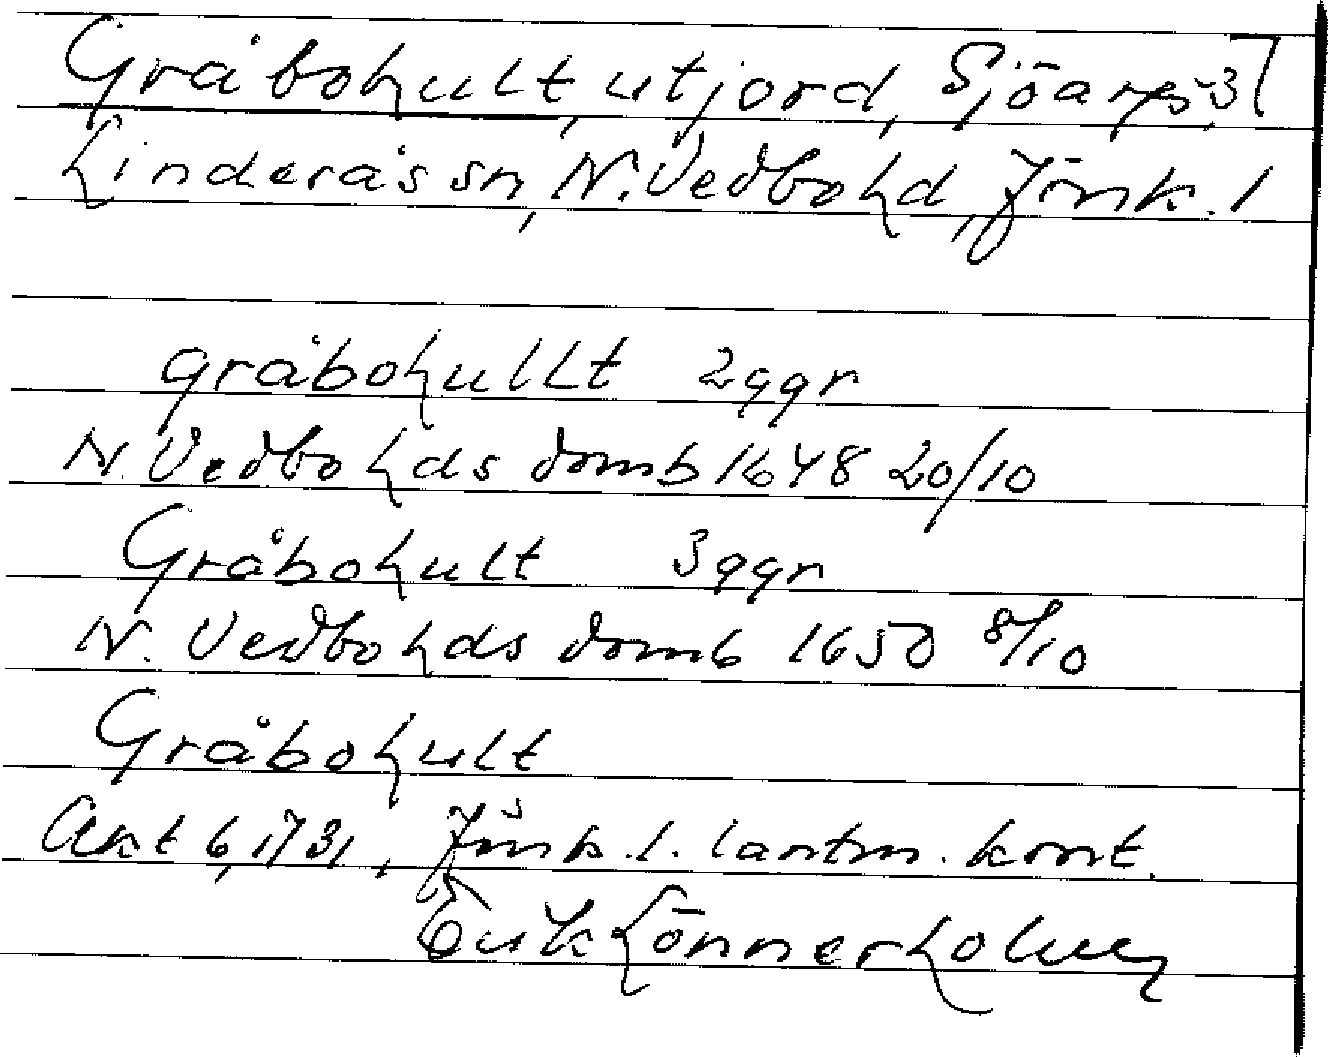 Gråbohult, utjord, Sjöarp 3]
Linderås sn, N. Vedbo hd, Jönk. l
gråbohullt 2 ggr
N. Vedbo hds domb 1648 20/10
Gråbohult 3 ggr
N. Vedbo hds domb 1650 8/10
Gråbohult
Akt 6, 1731, Jönk. l. lantm. kont.
Erik Lönnerholm